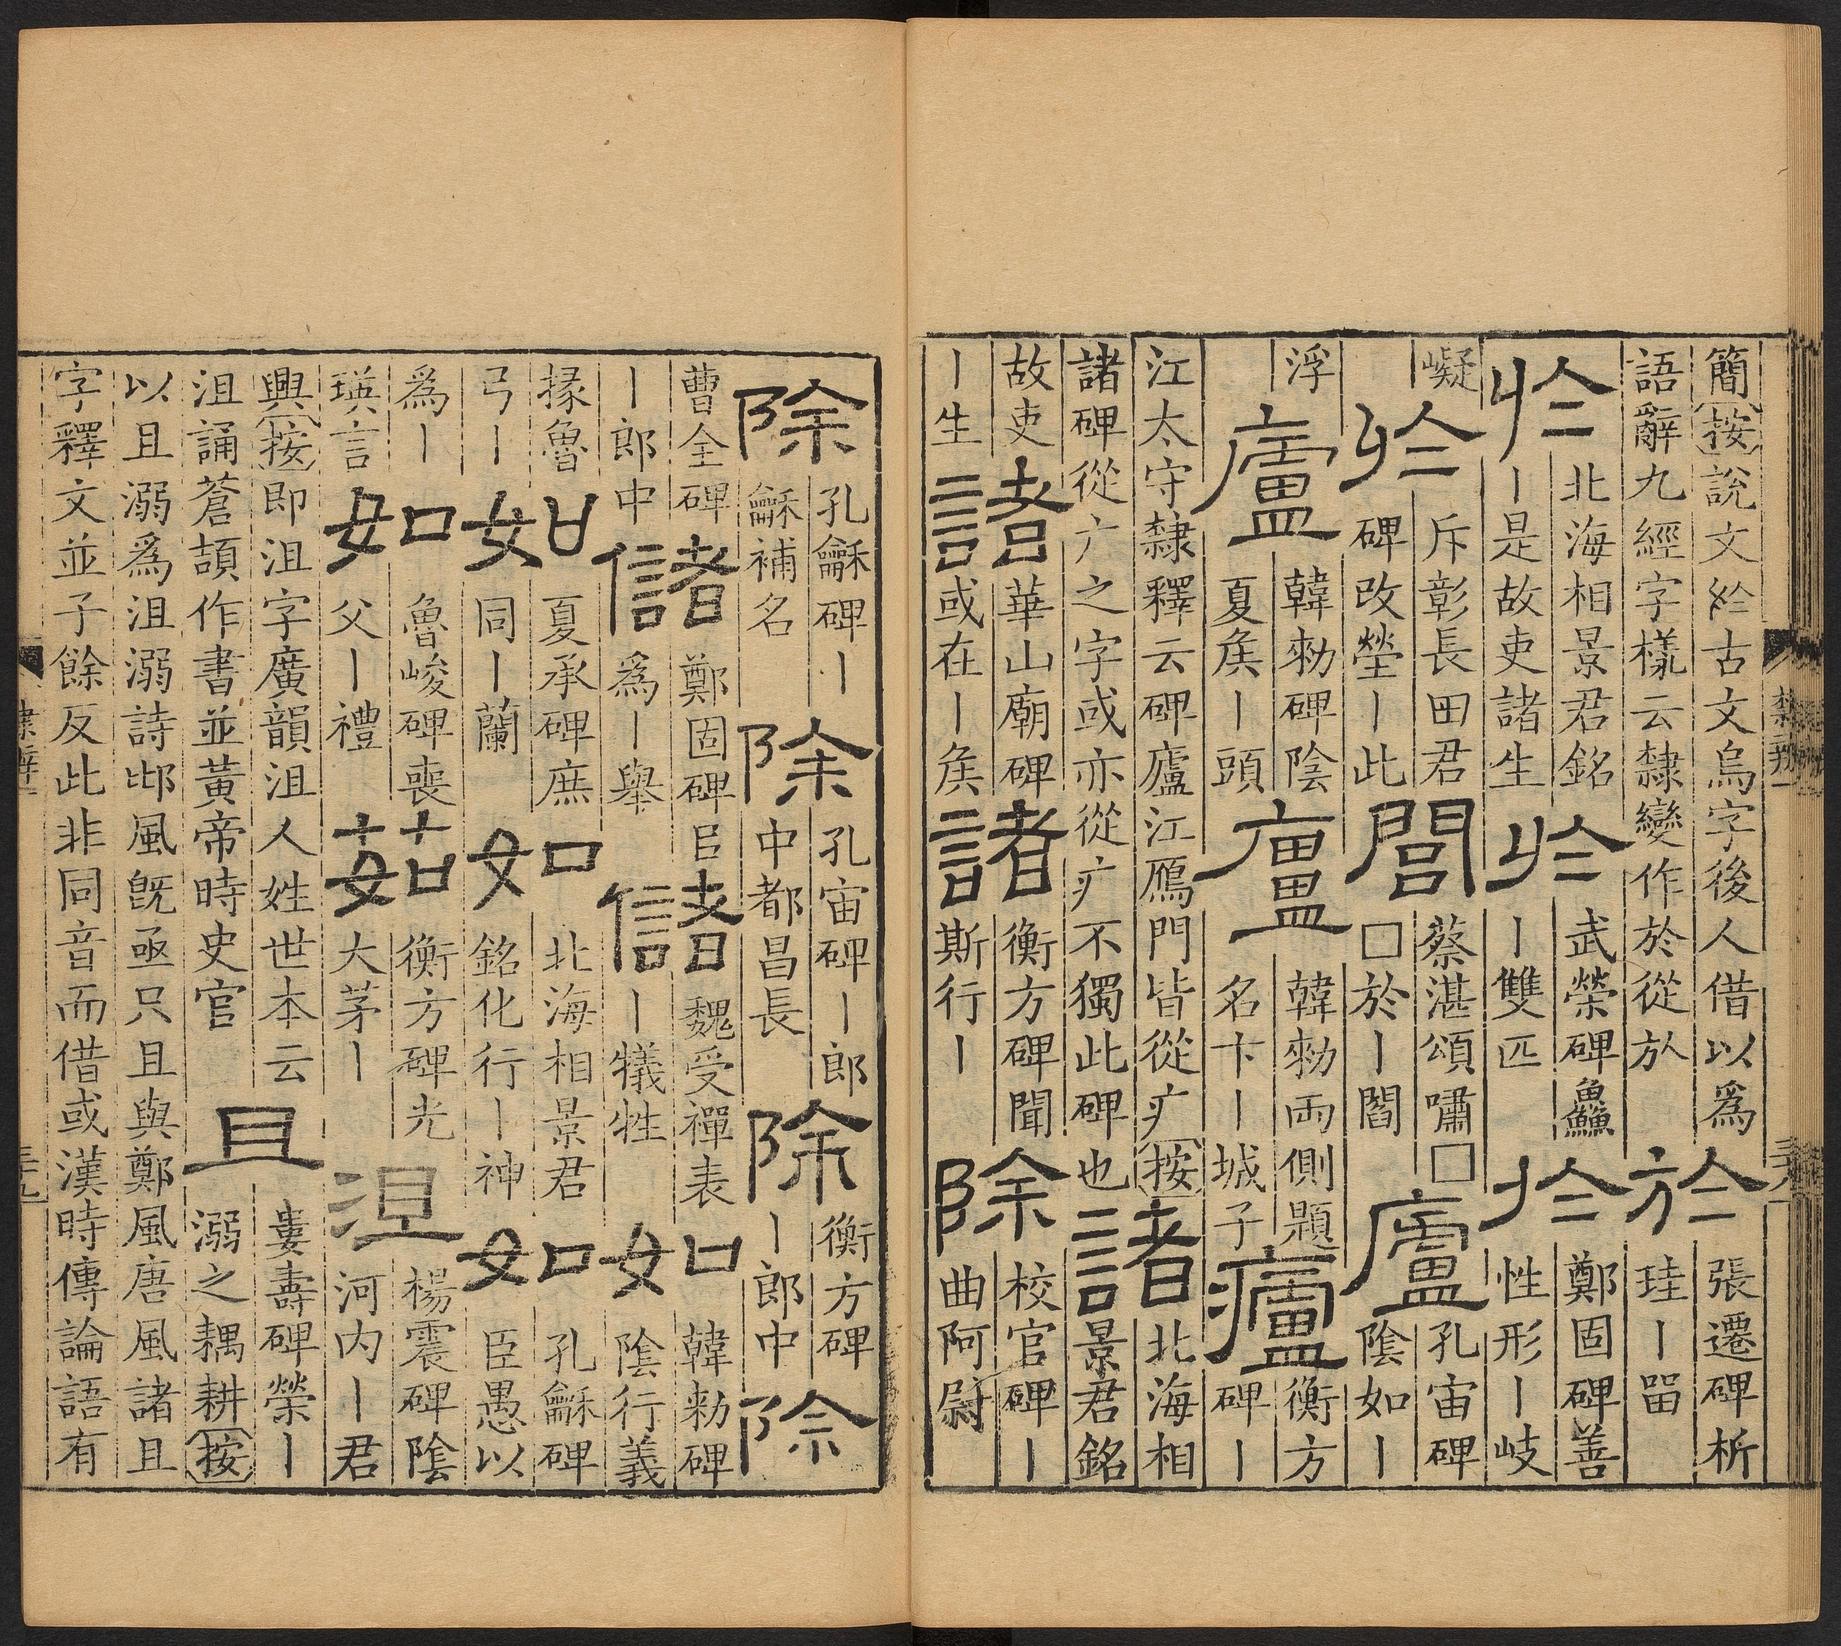 簡按說文𣱏古文烏字後人借以爲
語辭九經字樣云隸變作於從㫃
於
張遷碑析
珪丨畱
於
北海相景君銘
丨是故吏諸生
於
武榮碑鱻
丨雙匹
於
鄭固碑善
性形丨岐
嶷
於
斥彰長田君
碑改塋丨此
閭
蔡湛頌嘯□
□於丨閻
廬
孔宙碑
陰如丨
浮
廬
韓勑碑陰
夏矦丨頭
廬
韓勑兩側題
名卞丨城子
廬
衡方
碑丨
江太守隸釋云碑廬江鴈門皆從疒按
諸碑從广之字或亦從疒不獨此碑也
諸
北海相
景君銘
故吏
丨生
諸
華山廟碑
或在丨矦
諸
衡方碑聞
斯行丨
除
校官碑丨
曲阿尉
除
孔龢碑丨
龢補名
除
孔宙碑丨郎
中都昌長
除
衡方碑
丨郎中
除
曹全碑
丨郎中
儲
鄭固碑㠯
爲丨舉
儲
魏受禪表
丨犧牲
如
韓勑碑
陰行義
掾魯
弓丨
如
夏承碑庶
同丨蘭
如
北海相景君
銘化行丨神
如
孔龢碑
臣愚以
爲丨
瑛言
如
魯峻碑喪
父丨禮
茹
衡方碑光
大茅丨
沮
楊震碑陰
河內丨君
興按即沮字廣韻沮人姓世本云
沮誦蒼頡作書並黃帝時史官
且
婁壽碑榮丨
溺之耦耕按
以且溺爲沮溺詩邶風旣亟只且與鄭風唐風諸且
字釋文並子餘反此非同音而借或漢時傳論語有